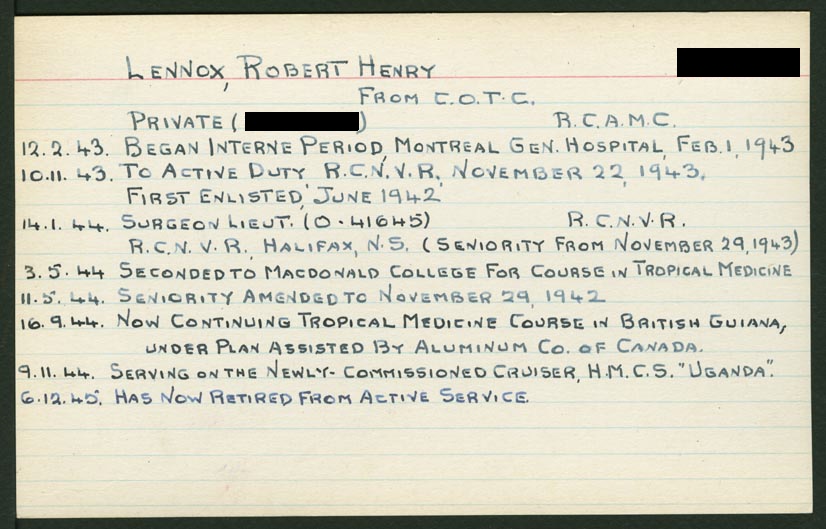 LENNOX, ROBERT HENRY
FROM C.O.T.C.
PRIVATE ( ) R.C.A.M.C.
12.2.43. BEGAN INTERNE PERIOD, MONTREAL GEN. HOSPITAL, FEB. 1, 1943
10.11.43. TO ACTIVE DUTY R.C.N.V.R., NOVEMBER 22, 1943.
FIRST ENLISTED, JUNE 1942
14.1.44. SURGEON LIEUT. (O-41645) R.C.N.V.R.
R.C.N.V.R., HALIFAX, N.S. (SENIORITY FROM NOVEMBER 29, 1943)
3.5.44 SECONDED TO MACDONALD COLLEGE FOR COURSE IN TROPICAL MEDICINE
11.5.44. SENIORITY AMENDED TO NOVEMBER 29, 1942
16.9.44. NOW CONTINUING TROPICAL MEDICINE COURSE IN BRITISH GUIANA,
UNDER PLAN ASSISTED BY ALUMINUM CO. OF CANADA.
9.11.44. SERVING ON THE NEWLY-COMMISSIONED CRUISER, H.M.C.S. "UGANDA".
6.12.45. HAS NOW RETIRED FROM ACTIVE SERVICE.